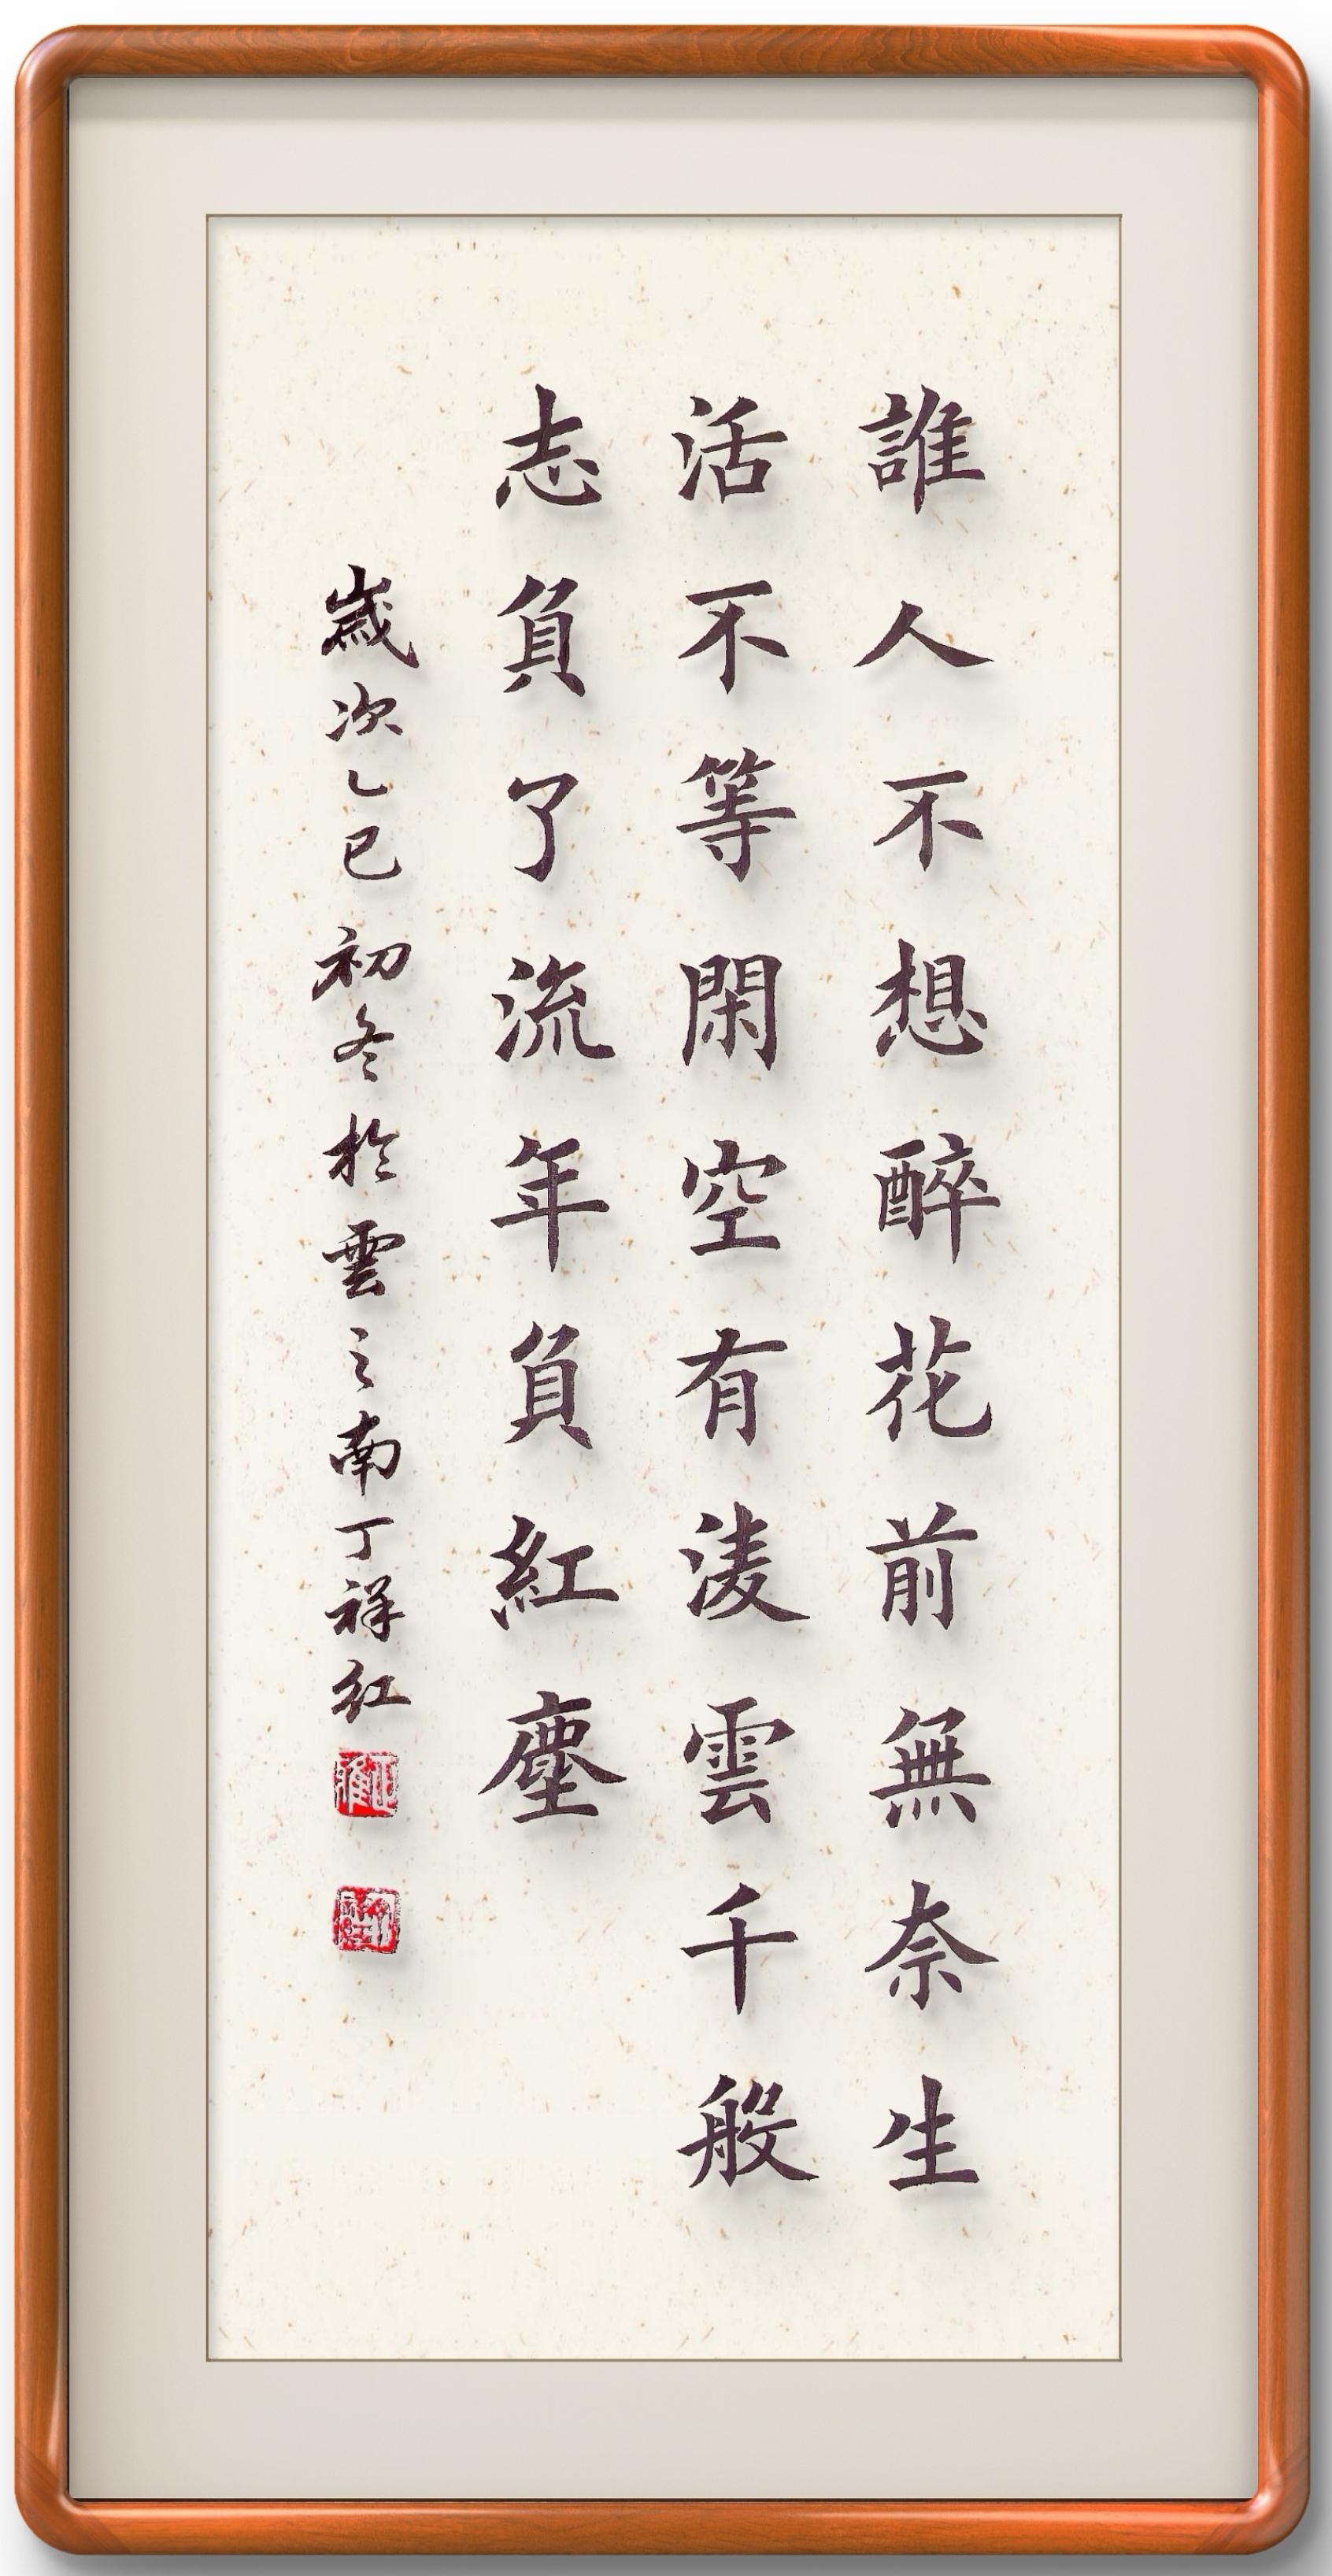 誰人不想醉花前無奈生
活不等閑空有淩雲千般
志負了流年負紅塵
歲次乙巳初冬於雲之南丁祥紅